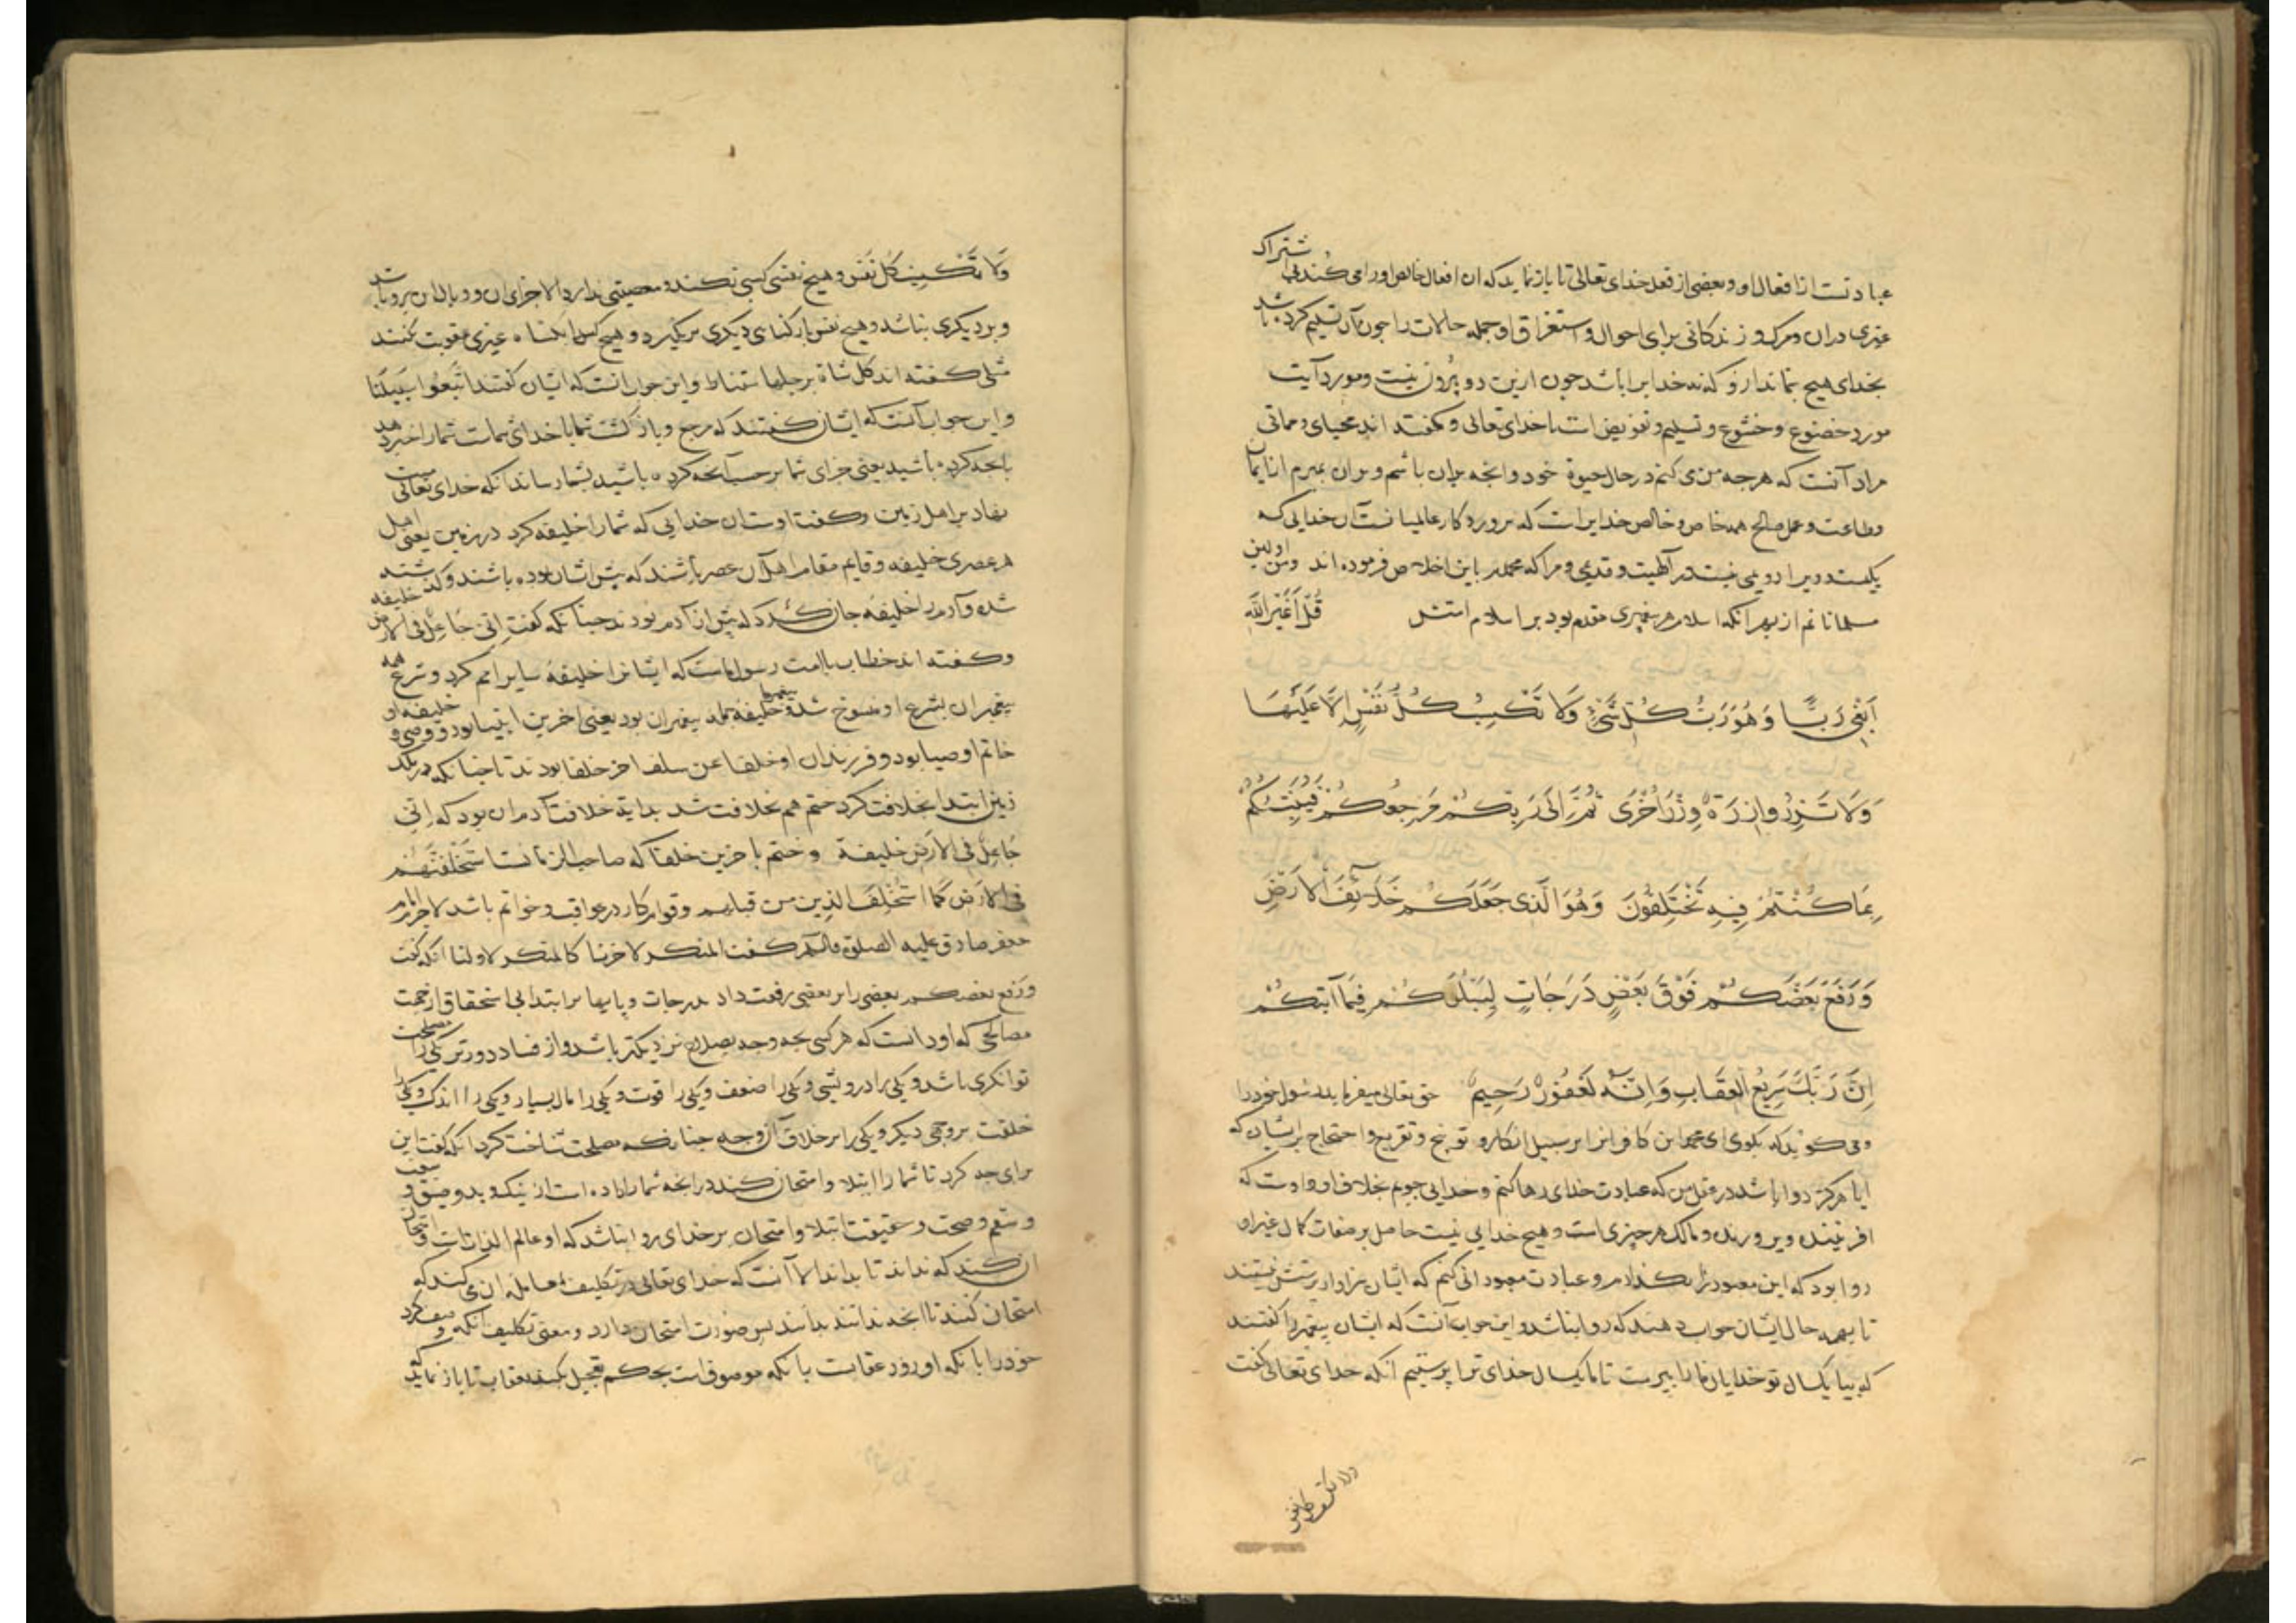 عبادتست از افعال او و بعضی از فعل خدای تعالی تا باز نماید که ان افعال خالص او را می کنند بی اشتراک
غیری دران و مرک و زندکانی برای احوال و استغراق او جمله حالات را چون بآن تسلیم کرده باشد
بخدای هیچ نماند از و که نه خدایرا باشد چون ازین دو بیرون نیست و مورد آیت
مورد خضوع و خشوع و تسلیم و تفویض است با خدای تعالی و کفته اند محیای و مماتی
مراد آنست که هر چه من می کنم در حال حیوة خود و انچه بران باشم و بران بمیرم از ایمان
و طاعت و عمل صالح همه خاص و خالص خدایراست که پروردکار عالمیانست آن خدایی که
یکیست و ویرا دویمی نیست در آلهیت و قدیمی و مرا که محمدم باین اخلاص فرموده اند و من اولین
مسلمانانم از بهر آنکه اسلام هر پیغمبری مقدم بود بر اسلام امتش قُلْ اَغَیْرَ اللّٰهِ
اَبْغِی رَبًّا وَ هُوَ رَبُّ کُلِّ شَیْءٍ وَلَا تَکْسِبُ کُلُّ نَفْسٍ اِلَّا عَلَیْهَا
وَلَا تَزِرُ وَازِرَةٌ وِزْرَ اُخْرَی ثُمَّ اِلَی رَبِّکُمْ مَرْجِعُکُمْ فَیُنَبِّئُکُمْ
بِمَا کُنْتُمْ فِیهِ تَخْتَلِفُونَ وَهُوَ الَّذِی جَعَلَکُمْ خَلَآئِفَ الْاَرْضِ
وَرَفَعَ بَعْضَکُمْ فَوْقَ بَعْضٍ دَرَجَاتٍ لِیَبْلُوَکُمْ فِیمَا آتٰیکُمْ
اِنَّ رَبَّکَ سَرِیعُ الْعِقَابِ وَاِنَّهُ لَغَفُورٌ رَحِیمٌ حق تعالی میفرماید رسول خود را
و می کوید که بکوی ای محمد این کافرانرا بر سبیل انکار و توبیخ و تقریع و احتجاج بر ایشان که
ایا هرکز روا باشد در عقل من که عبادت خدای رها کنم و خدایی جویم بخلاف او و اوست که
افریننده و پرورنده و مالک هر چیزی است و هیچ خدایی نیست حاصل بر صفات کمال غیر او
روا بود که این معبود را بگذارم و عبادت معبودانی کنم که ایشان سزاوار پرستش نیستند
تا بهمه حال ایشان جواب دهند که روا نباشد و این جواب آنست که ایشان پیغمبر را کفتند
که بیا یکسال تو خدایان ما را بپرست تا ما یکسال خدای ترا پرستیم آنکه خدای تعالی کفت
ولا تکسب کل نفس
وَلَا تَکْسِبُ کُلُّ نَفْسٍ و هیچ نفسی کسبی نکند و معصیتی ندارد الا جزای ان و وبال ان برو باشد
و بر دیکری نباشد و هیچ نفس بار کناه دیکری بر نکیرد و هیچ کس را بکناه غیری عقوبت نکنند
مثلی کفته اند کل شاة برجلها ستناط و این جواب انست که ایشان کفتند اتَّبِعُوا سَبِیلَنَا
و این جواب آنست که ایشان کفتند که مرجع و بازکشت شما با خدای شماست شما را خبر دهد
بانچه کرده باشید یعنی جزای شما بر حسب آنچه کرده باشید بشما رساند آنکه خدای تعالی منت
نهاد بر اهل زمین و کفت اوست ان خدایی که شما را خلیفه کرد در زمین یعنی اهل
هر عصری خلیفه و قایم مقام اهل آن عصر باشند که پیش ایشان بوده باشند و کذشته
شده و آدم را خلیفه جان کرد که پیش از آدم بودند چنانکه کفت اِنّی جَاعِلٌ فی الاَرض خلیفه
و کفته اند خطاب با امت رسول ماست که ایشانرا خلیفه سایر امم کرد و شرع همه
پیغمبران بشرع او منسوخ شد و پیغمبر ما خلیفه جمله پیغمبران بود یعنی اخرین انبیا بود و وصی و خلیفه او
خاتم اوصیا بود و فرزندان او خلفا عن سلف اخر خلفا بودند تا چنانکه در ملک
زمین ابتدا بخلافت کرد ختم هم بخلافت شد بدایة خلافت آدم ان بود که اِنّی
جَاعِلٌ فی الاَرض خلیفة و ختم باخرین خلفا که صاحب الزمانست لیَسْتَخْلِفَنَّهُم
فی الاَرض کَمَا اسْتَخْلَفَ الَّذِینَ من قبلهم و قوام کار در عواقب و خواتم باشد لاجرم امام
جعفر صادق علیه الصلوة والسلم کفت المنکر لاخرنا کالمنکر لاولنا انکه کفت
وَرَفَعَ بعضکم بعضی را بر بعضی رفعت داد بدرجات و پایها بر ابتدا بی استحقاق از جهت
مصالحی که او دانست که هر کسی بچه وجه بصلاح نزدیکتر باشد و از فساد دورتر یکی را مصلحت
توانکری باشد و یکی را درویشی و یکی را ضعف و یکی را قوت و یکی را مال بسیار و یکی را اندک و یکی را
خلقت بر وجهی دیکر و یکی را بر خلاف آن وجه چنانکه مصلحت شناخت کرد انکه کفت این
برای چه کرد تا شما را ابتلا و امتحان کند در انچه شما را داده است از نیک و بد و ضیق و سعت
و سقم و صحت و حقیقت ابتلا و امتحان بر خدای روا نباشد که او عالم الذاتست و امتحان
ان کند که نداند تا بداند الا آنست که خدای تعالی در تکلیف معامله ان می کند که
امتحان کنند تا انچه ندانند بدانند پس صورت امتحان دارد و معنی تکلیف آنکه وصف کرد
خود را بانکه او زود عقابت بانکه موصوفست بحکم تعجیل نکند عقاب تا باز نماید که